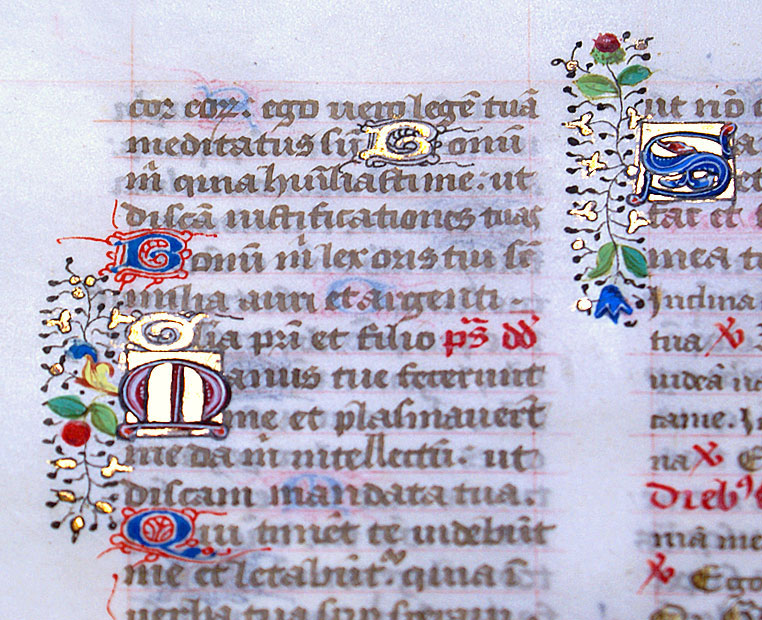 cor eor. ego vero legē tuā
meditatus sū Bonū
m̄ quia hūiliasti me. ut
discā iustificationes tuas
Bonū m̄ lex oris tui sr̄
milia auri et argenti.
Glia pr̄i et filio ps̄ dd̄
Manus tue fecerunt
me et plasmaverūt
me da m̄ intellectū. ut
discam mandata tua.
Qui timēt te videbūt
me et letabūt. quia ī
verba tua
ut nō
S
et
tat et
mea
Inclina
tua
videā
tame. I
na
Dieb9
mā me
Ego